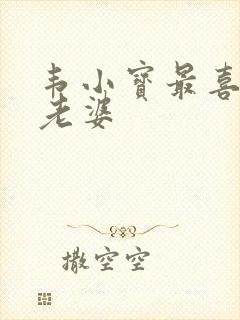 韦小寶最喜
老婆
撒空空